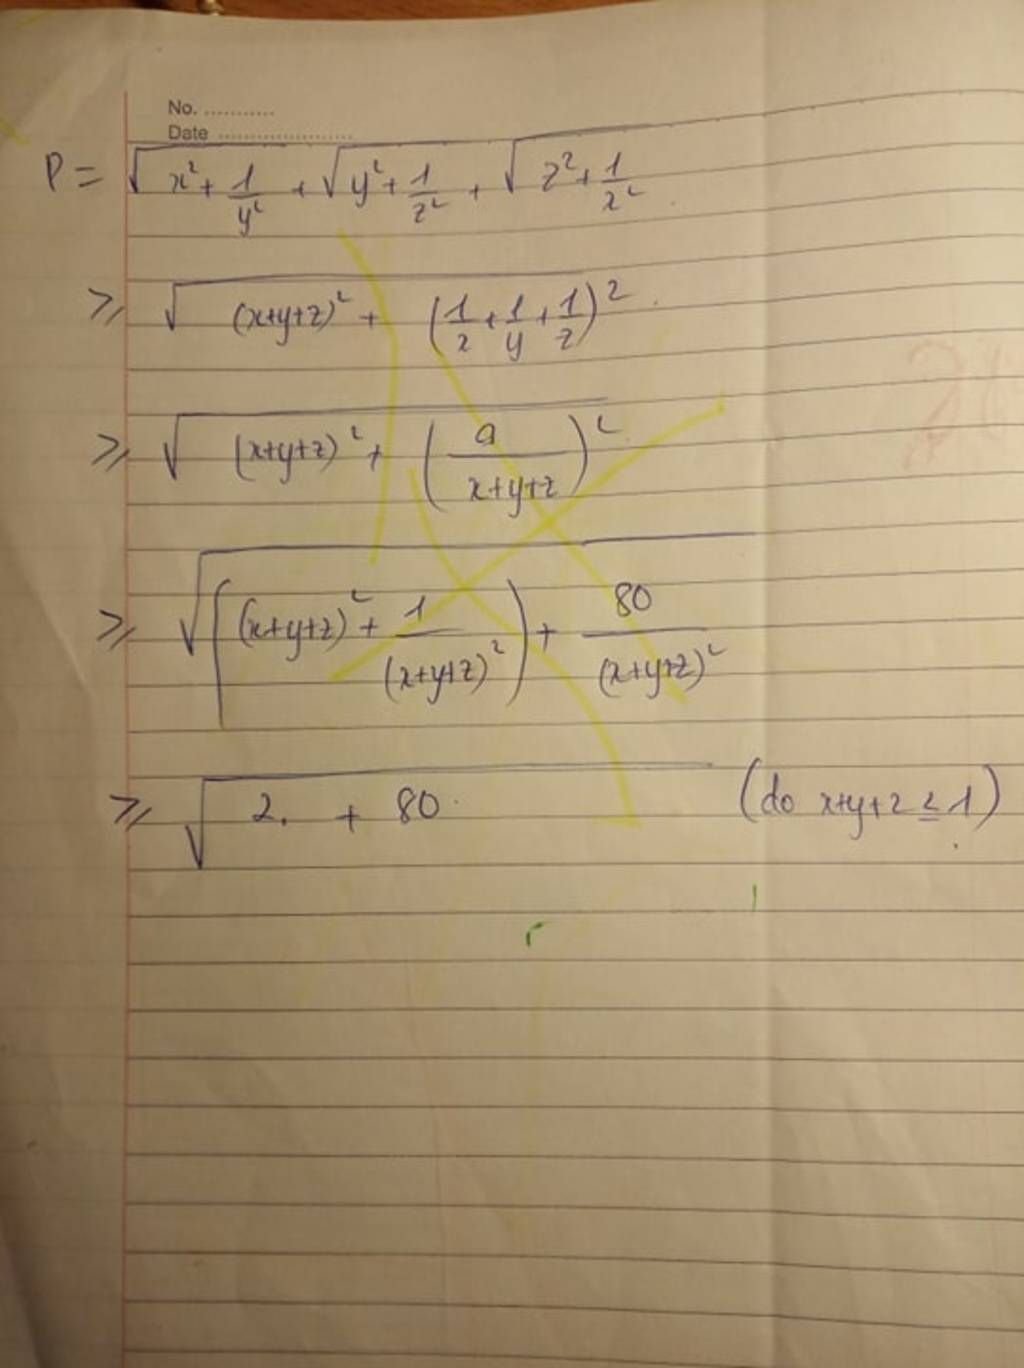 No. ...........
Date ...................
P = √(x² + 1/y²) + √(y² + 1/z²) + √(z² + 1/x²)
≥ √((x+y+z)² + (1/x + 1/y + 1/z)²)
≥ √((x+y+z)² + (9/(x+y+z))²)
≥ √(((x+y+z)² + 1/(x+y+z)²) + 80/(x+y+z)²)
≥ √(2. + 80) (do x+y+z ≤ 1)